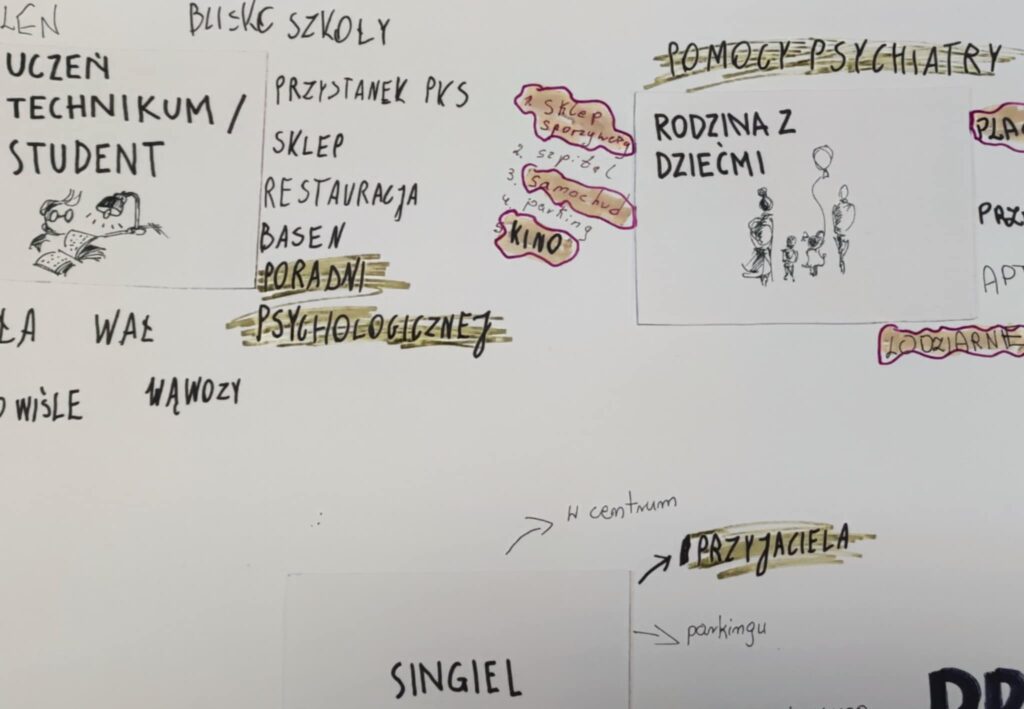 BLISKO SZKOŁY
UCZEŃ
TECHNIKUM /
STUDENT
PRZYSTANEK PKS
SKLEP
RESTAURACJA
BASEN
PORADNI
PSYCHOLOGICZNEJ
WAŁ
WIŚLE
WĄWOZY
1. Sklep
spożywczy
2. szpital
3. Samochud
4. parking
5. KINO
POMOCY PSYCHIATRY
RODZINA Z
DZIEĆMI
LODZIARNIE
w centrum
PRZYJACIELA
parkingu
SINGIEL